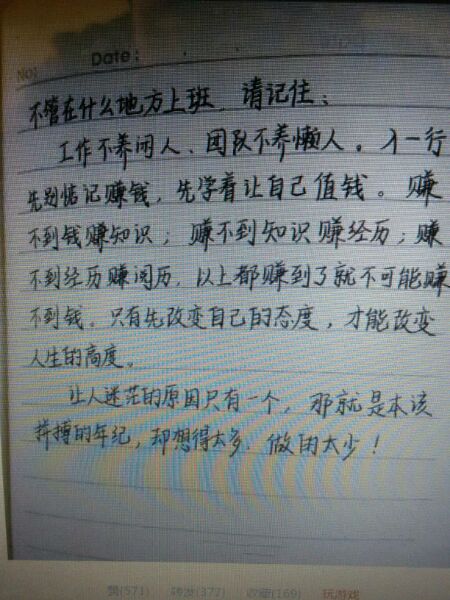 No:
Date:
不管在什么地方上班，请记住：
工作不养闲人、团队不养懒人。入一行
先别惦记赚钱，先学着让自己值钱。赚
不到钱赚知识；赚不到知识赚经历；赚
不到经历赚阅历，以上都赚到了就不可能赚
不到钱。只有先改变自己的态度，才能改变
人生的高度。
让人迷茫的原因只有一个，那就是本该
拼搏的年纪，却想得太多，做的太少！
赞(571) 转发(377) 收藏(169) 玩游戏